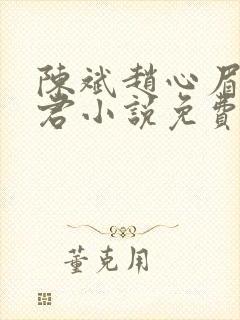 陳斌趙心眉
君小說免費
董克用